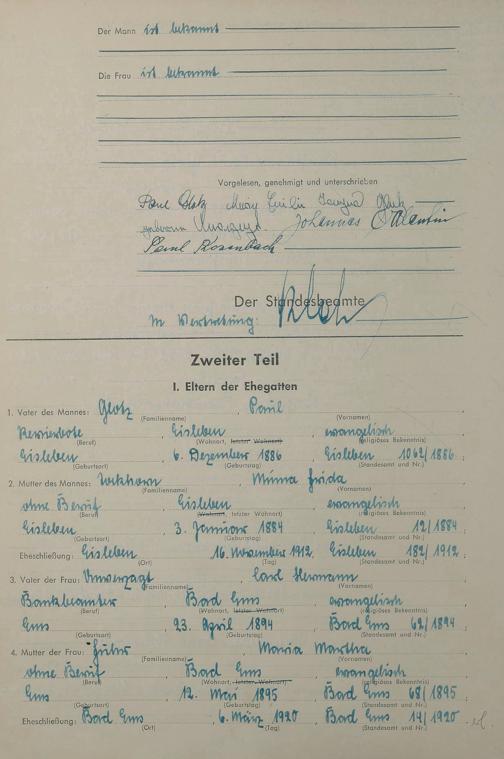 Der Mann ist bekannt
Die Frau ist bekannt
Vorgelesen, genehmigt und unterschrieben
Paul Glotz Glotz
geborene Unverzagt Johannes Valentin
Paul Rosenbach
Der Standesbeamte
In Vertretung:
Zweiter Teil
I. Eltern der Ehegatten
1. Vater des Mannes: Glotz, Paul
(Familienname) (Vornamen)
Revierbote, Eisleben, evangelisch
(Beruf) (Wohnort, letzter Wohnort) (religiöses Bekenntnis)
Eisleben, 6. Dezember 1886, Eisleben 1062/1886;
(Geburtsort) (Geburtstag) (Standesamt und Nr.)
2. Mutter des Mannes: Minna Frida
(Familienname) (Vornamen)
ohne Beruf, Eisleben, evangelisch
(Beruf) (Wohnort, letzter Wohnort) (religiöses Bekenntnis)
Eisleben, 3. Januar 1884, Eisleben 12/1884;
(Geburtsort) (Geburtstag) (Standesamt und Nr.)
Eheschließung: Eisleben, 16. November 1912, Eisleben 182/1912;
(Ort) (Tag) (Standesamt und Nr.)
3. Vater der Frau: Unverzagt, Carl Hermann
(Familienname) (Vornamen)
Bankbeamter, Bad Ems, evangelisch
(Beruf) (Wohnort, letzter Wohnort) (religiöses Bekenntnis)
Ems, 23. April 1894, Bad Ems 62/1894;
(Geburtsort) (Geburtstag) (Standesamt und Nr.)
4. Mutter der Frau: Maria Martha
(Familienname) (Vornamen)
ohne Beruf, Bad Ems, evangelisch
(Beruf) (Wohnort, letzter Wohnort) (religiöses Bekenntnis)
Ems, 12. Mai 1895, Bad Ems 68/1895;
(Geburtsort) (Geburtstag) (Standesamt und Nr.)
Eheschließung: Bad Ems, 6. März 1920, Bad Ems 14/1920.
(Ort) (Tag) (Standesamt und Nr.)